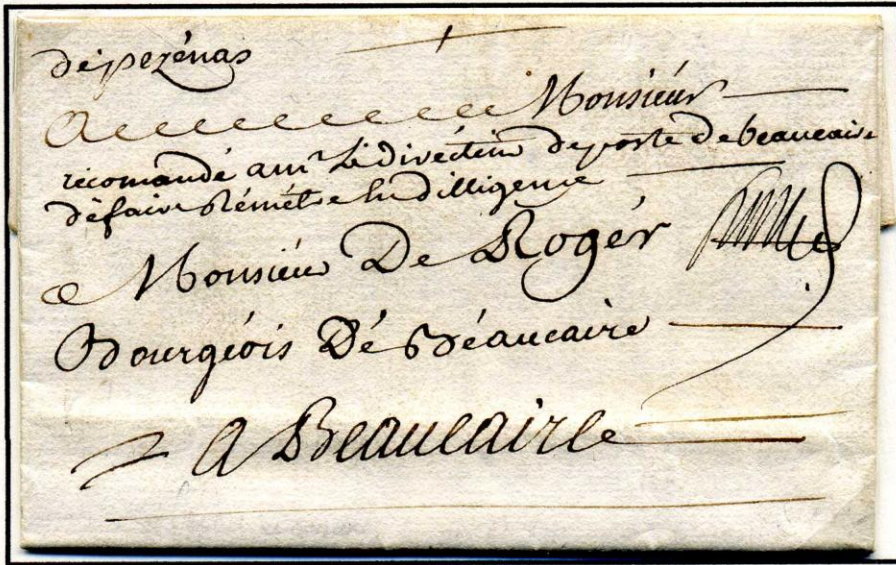 dépezénas
A Monsiéur
récomandé a mr Lé diréctéur dé posté dé béaucaire
défaire Rémétre En dilligence
a Monsiéur De Rogér
Bourgéois Dé Béaucaire
a Beaucaire